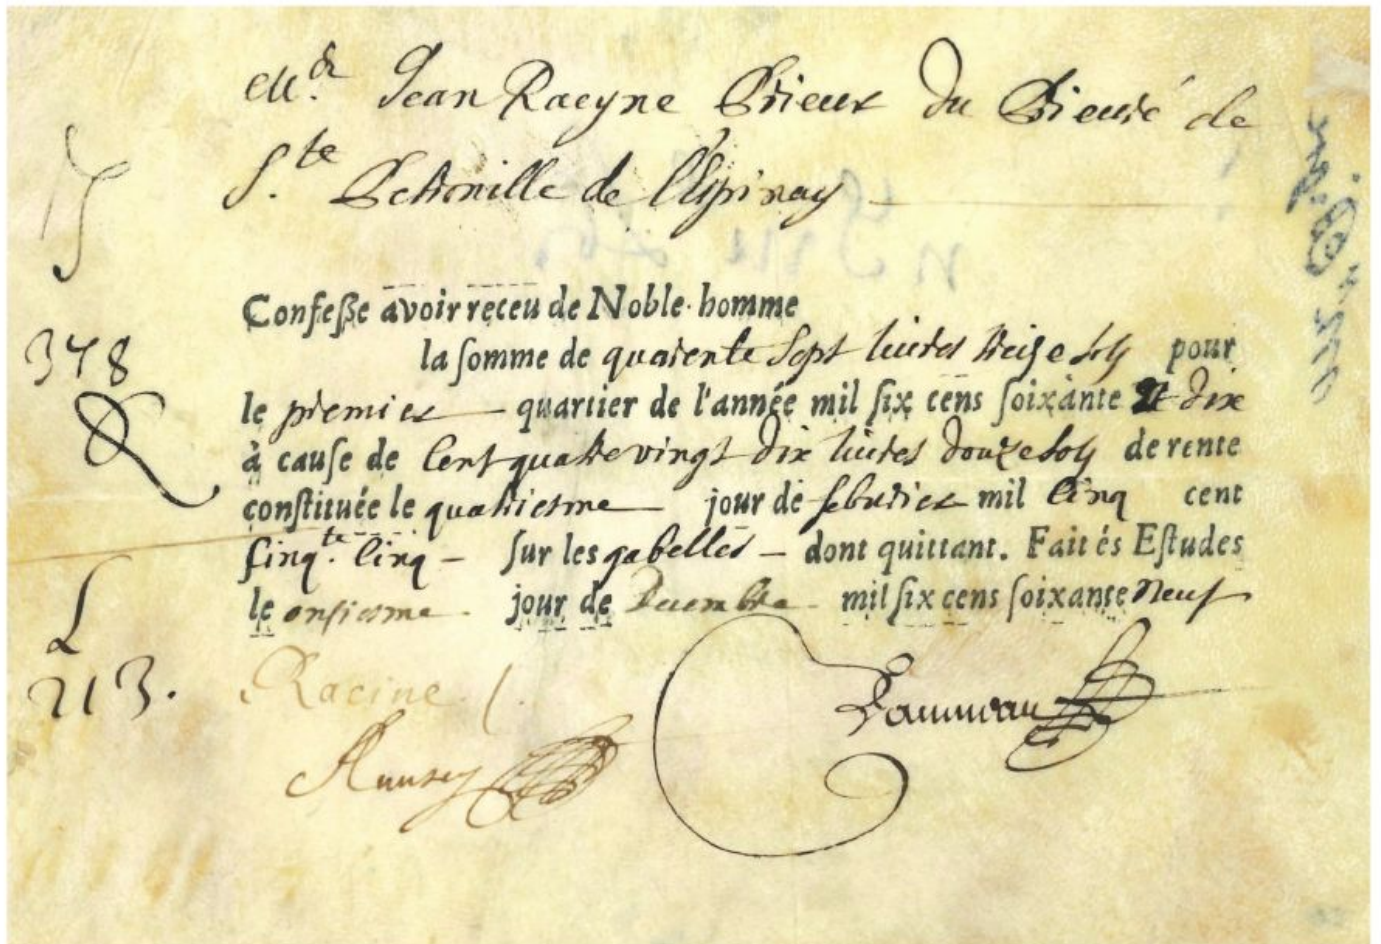 Mr. Jean Racyne Prieur du Prieuré de
S.te Petronille de l'Espinay
Confeſſe avoir receu de Noble homme
la ſomme de quarente Sept livres treize sols pour
378
le premier quartier de l'année mil ſix cens ſoixante et dix
à cauſe de Cent quatre vingt dix livres douze sols de rente
conſtituée le quatriesme jour de febvrier mil Cinq cent
Cinq.te Cinq ſur les gabelles dont quittant. Fait és Eſtudes
le onsiesme jour de Decembre mil ſix cens ſoixante Neuf
L
213.
Racine